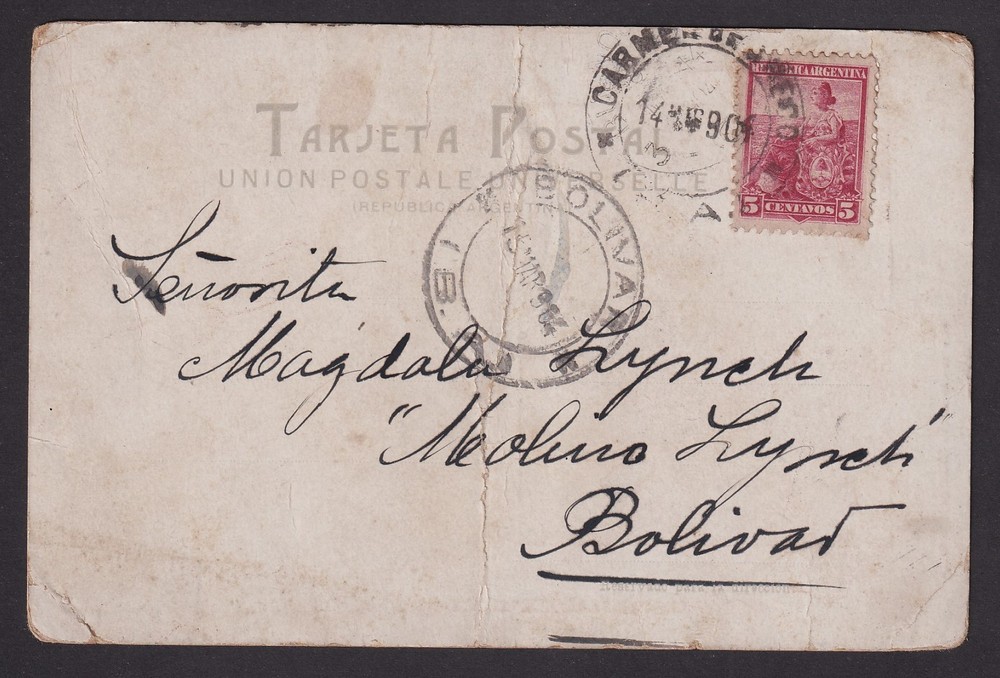 TARJETA POSTAL
UNION POSTALE UNIVERSELLE
(REPUBLICA ARGENTINA)
CARMEN DE
14 904
3
REPUBLICA ARGENTINA
5 CENTAVOS 5
BOLIVAR
15 904
Señorita
Magdala Lynch
"Molino Lynch"
Bolivar
Reservado para la dirección